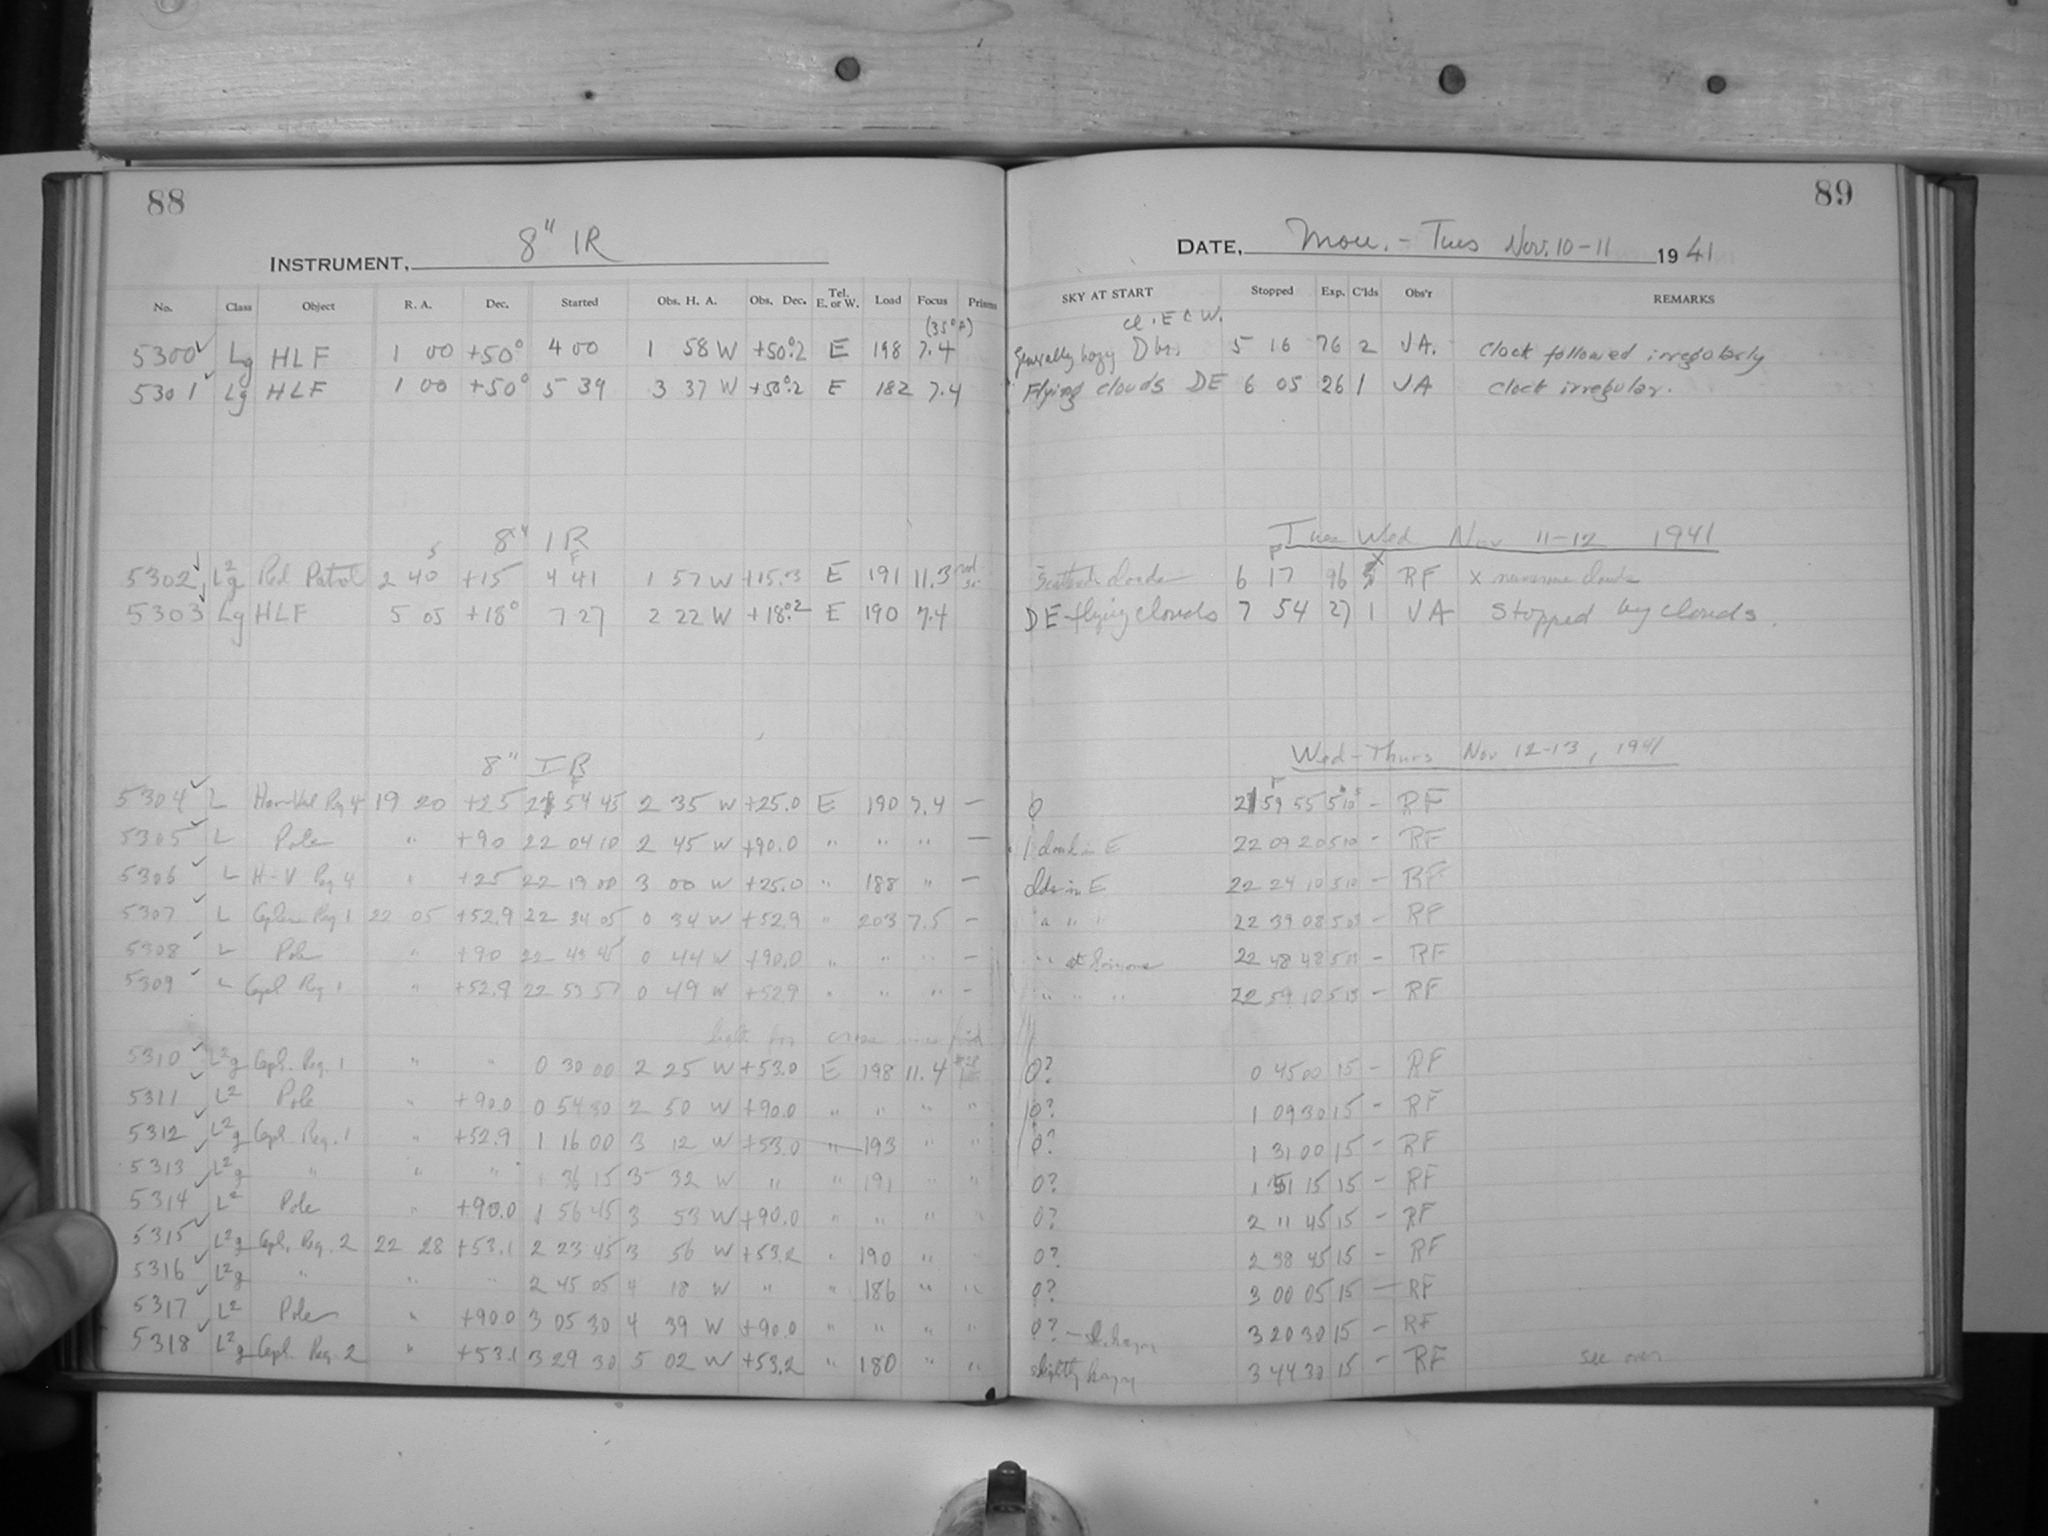 88
INSTRUMENT, 8" IR
No. Class Object R. A. Dec. Started Obs. H. A. Obs. Dec. Tel. E. or W. Load Focus Prisms
(35°F)
5300 ✓ Lg HLF 1 00 +50° 4 00 1 58 W +50°.2 E 198 7.4
5301 ✓ Lg HLF 1 00 +50° 5 39 3 37 W +50°.2 E 182 7.4
8" IR
5302 ✓ L²g Red Patrol 2 40 +15 4 41 1 57 W +15.3 E 191 11.3 red
5303 ✓ Lg HLF 5 05 +18° 7 27 2 22 W +18°.2 E 190 7.4
8" IR
5304 ✓ L 19 20 +25 21 54 45 2 35 W +25.0 E 190 7.4 —
5305 ✓ L Pole " +90 22 04 10 2 45 W +90.0 " " " —
5306 ✓ L H-V Reg 4 " +25 22 19 00 3 00 W +25.0 " 188 " —
5307 ✓ L Reg 1 22 05 +52.9 22 34 05 0 34 W +52.9 " 203 7.5 —
5308 ✓ L Pole " +90 22 43 45 0 44 W +90.0 " " " —
5309 ✓ L Ceph Reg 1 " +52.9 22 53 57 0 49 W +52.9 " " " —
5310 ✓ L²g Ceph. Reg. 1 " " 0 30 00 2 25 W +53.0 E 198 11.4
5311 ✓ L² Pole " +90.0 0 54 30 2 50 W +90.0 " " " "
5312 ✓ L²g Ceph Reg. 1 " +52.9 1 16 00 3 12 W +53.0 " 193 " "
5313 ✓ L²g " " " 1 36 15 3 32 W " " 191 " "
5314 ✓ L² Pole " +90.0 1 56 45 3 53 W +90.0 " " " "
5315 ✓ L²g Ceph. Reg. 2 22 28 +53.1 2 23 45 3 56 W +53.2 " 190 " "
5316 ✓ L²g " " " 2 45 05 4 18 W " " 186 " "
5317 ✓ L² Pole " +90.0 3 05 30 4 39 W +90.0 " " " "
5318 ✓ L²g Ceph. Reg. 2 " +53.1 3 29 30 5 02 W +53.2 " 180 " "
89
DATE, Mon. - Tues Nov. 10-11 1941
SKY AT START Stopped Exp. C'lds Obs'r REMARKS
cl. E & W.
Generally hazy 5 16 76 2 VA. Clock followed irregularly
Flying clouds DE 6 05 26 1 VA Clock irregular.
Tues Wed Nov 11-12 1941
6 17 96 RF x numerous clouds
DE - flying clouds 7 54 27 1 VA Stopped by clouds.
Wed - Thurs Nov 12-13, 1941
0 21 59 55 5 10 - RF
1 cloud in E 22 09 20 5 10 - RF
clds in E 22 24 10 5 10 - RF
" " " 22 39 08 5 03 - RF
" at horizon 22 48 48 5 03 - RF
" " " 22 59 10 5 13 - RF
0? 0 45 00 15 - RF
0? 1 09 30 15 - RF
0? 1 31 00 15 - RF
0? 1 51 15 15 - RF
0? 2 11 45 15 - RF
0? 2 38 45 15 - RF
0? 3 00 05 15 - RF
0? - sl. hazy 3 20 30 15 - RF
slightly hazy 3 44 30 15 - RF see over